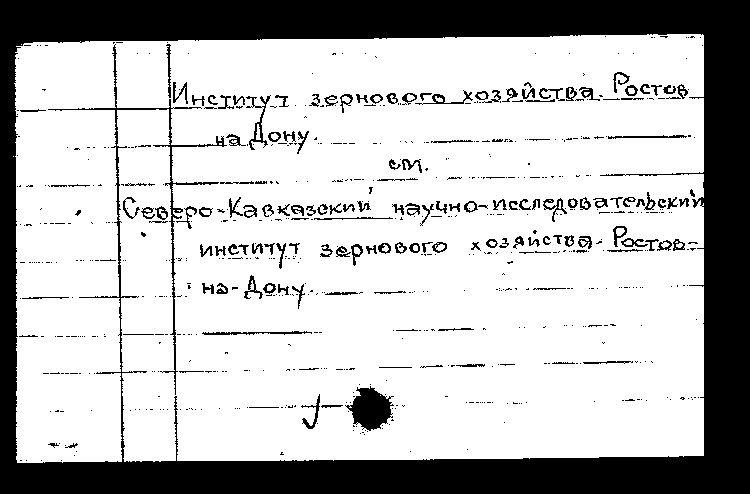 Институт зернового хозяйства. Ростов
на Дону.
см.
Северо-Кавказский научно-исследовательский
институт зернового хозяйства. Ростов-
на-Дону.